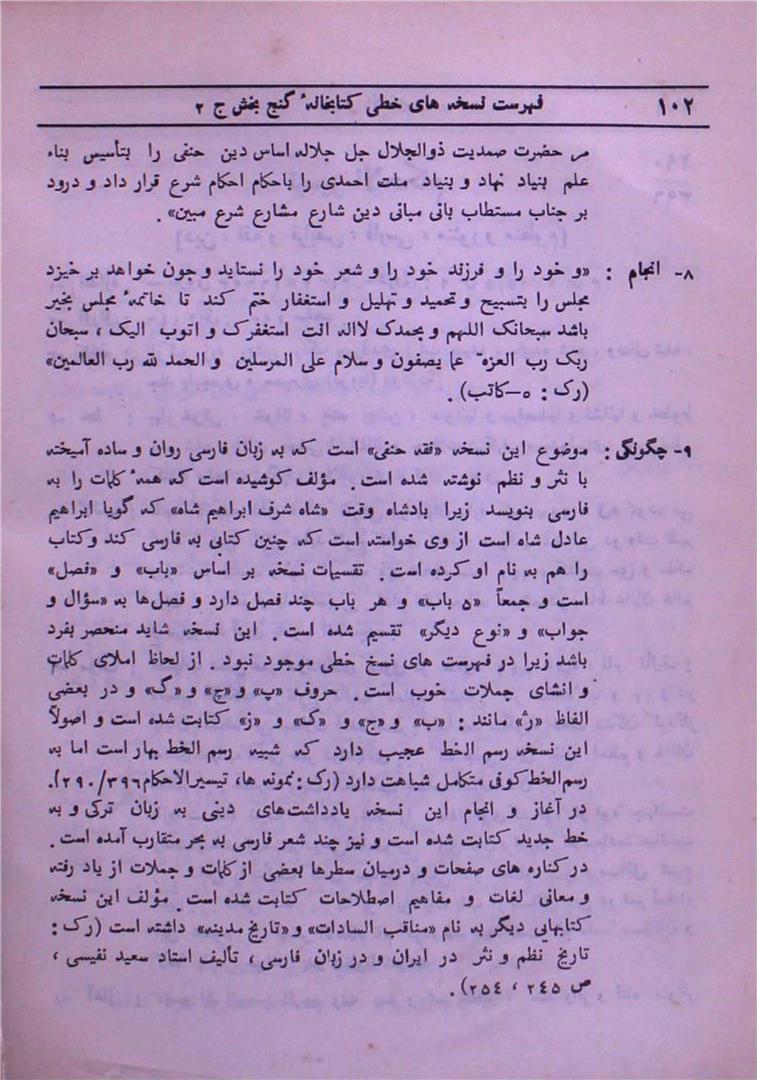 ۱۰۲ فهرست نسخه های خطی کتابخانهٔ گنج بخش ج ۲
مر حضرت صمدیت ذوالجلال جل جلاله اساس دین حنفی را بتأسیس بناء
علم بنیاد نهاد و بنیاد ملت احمدی را باحکام احکام شرع قرار داد و درود
بر جناب مستطاب بانی مبانی دین شارع مشارع شرع مبین» .
۸- انجام : «و خود را و فرزند خود را و شعر خود را نستاید و چون خواهد بر خیزد
مجلس را بتسبیح و تحمید و تهلیل و استغفار ختم کند تا خاتمهٔ مجلس بخیر
باشد سبحانک اللهم و بحمدک لااله انت استغفرک و اتوب الیک ، سبحان
ربک رب العزة عما یصفون و سلام علی المرسلین و الحمد لله رب العالمین»
(رک : ۵-کاتب) .
۹- چگونگی : موضوع این نسخه «فقه حنفی» است که به زبان فارسی روان و ساده آمیخته
با نثر و نظم نوشته شده است . مؤلف کوشیده است که همهٔ کلمات را به
فارسی بنویسد زیرا بادشاه وقت «شاه شرف ابراهیم شاه» که گویا ابراهیم
عادل شاه است از وی خواسته است که چنین کتابی به فارسی کند وکتاب
را هم به نام او کرده است . تقسیمات نسخه بر اساس «باب» و «فصل»
است و جمعاً «۵ باب» و هر باب چند فصل دارد و فصل‌ها به «سؤال و
جواب» و «نوع دیگر» تقسیم شده است . این نسخه شاید منحصر بفرد
باشد زیرا در فهرست های نسخ خطی موجود نبود . از لحاظ املای کلمات
و انشای جملات خوب است . حروف «پ» و «چ» و «گ» و در بعضی
الفاظ «ژ» مانند : «ب» و «ج» و «ک» و «ز» کتابت شده است و اصولاً
این نسخه رسم الخط عجیب دارد که شبیه رسم الخط بهار است اما به
رسم الخط کوفی متکامل شباهت دارد (رک : نمونه ها، تیسیرالاحکام ۲۹۰/۳۹۶).
در آغاز و انجام این نسخه یادداشت‌های دینی به زبان ترکی و به
خط جدید کتابت شده است و نیز چند شعر فارسی به بحر متقارب آمده است .
در کناره های صفحات و درمیان سطرها بعضی از کلمات و جملات از یاد رفته
و معانی لغات و مفاهیم اصطلاحات کتابت شده است . مؤلف این نسخه
کتابهایی دیگر به نام «مناقب السادات» و «تاریخ مدینه» داشته است (رک :
تاریخ نظم و نثر در ایران و در زبان فارسی ، تألیف استاد سعید نفیسی ،
ص ۲٤٥ ، ۲٥٤) .